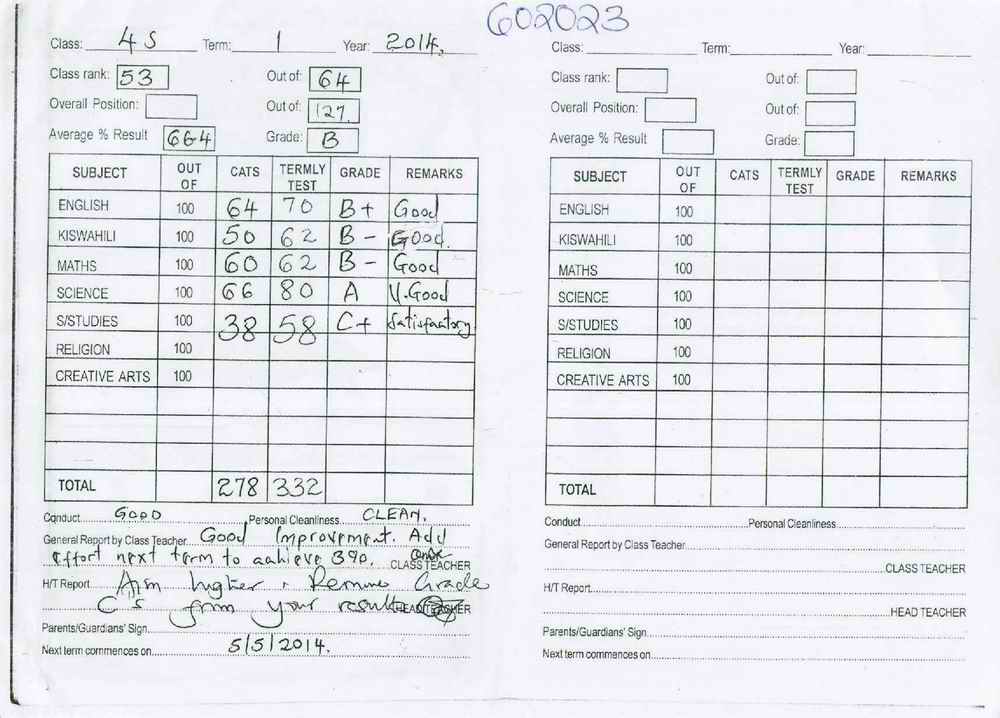 602023
Class: 4 S Term: 1 Year: 2014.
Class rank: 53 Out of: 64
Overall Position: Out of: 127.
Average % Result 664 Grade: B
SUBJECT OUT OF CATS TERMLY TEST GRADE REMARKS
ENGLISH 100 64 70 B+ Good
KISWAHILI 100 50 62 B- Good.
MATHS 100 60 62 B- Good
SCIENCE 100 66 80 A V.Good
S/STUDIES 100 38 58 C+ Satisfactory
RELIGION 100
CREATIVE ARTS 100
TOTAL 278 332
Conduct GOOD Personal Cleanliness CLEAN.
General Report by Class Teacher Good Improvement. Add
effort next term to achieve 390. CLASS TEACHER
H/T Report Aim higher. Remove Grade
C's from your results HEAD TEACHER
Parents/Guardians' Sign
Next term commences on 5/5/2014.
Class: Term: Year:
Class rank: Out of:
Overall Position: Out of:
Average % Result Grade:
SUBJECT OUT OF CATS TERMLY TEST GRADE REMARKS
ENGLISH 100
KISWAHILI 100
MATHS 100
SCIENCE 100
S/STUDIES 100
RELIGION 100
CREATIVE ARTS 100
TOTAL
Conduct Personal Cleanliness
General Report by Class Teacher
CLASS TEACHER
H/T Report
HEAD TEACHER
Parents/Guardians' Sign
Next term commences on